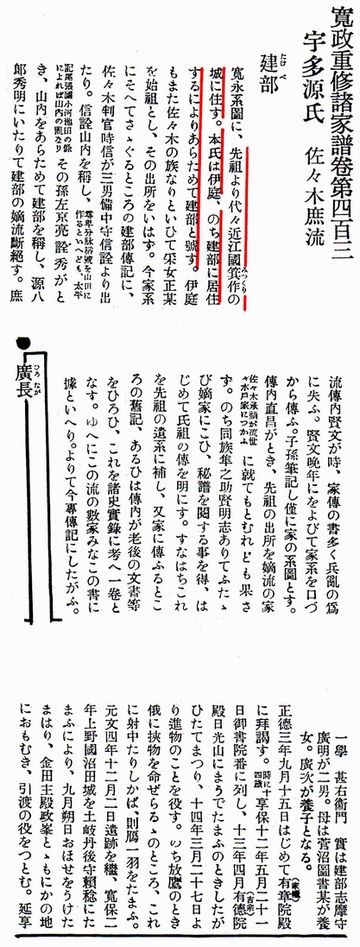 寛政重修諸家譜卷第四百三
宇多源氏 佐々木庶流
建部
たけべ
寛永系圖に、先祖より代々近江國箕作の
みつくり
城に住す。本氏は伊庭、のち建部に居住
するによりあらためて建部と號す。伊庭
もまた佐々木の族なりといひて采女正某
を始祖とし、その出所をいはす。今家系
にそへてさゝぐるところの建部傳記に、
佐々木判官時信が三男備中守信詮より出
たり。信詮山内を稱し、
その孫左京亮詮秀がと
き、山内をあらためて建部を稱し、源八
郎秀明にいたりて建部の嫡流斷絶す。庶
流傳内賢文が時、家傳の書多く兵亂の爲
に失ふ。賢文晩年にをよびて家系を口づ
から傳ふ。子孫筆記し僅に家の系圖とす。
傳内直昌がとき、先祖の出所を嫡流の家
に就てもとむれども果さ
ず。のち同族隼之助賢明志ありてふたゝ
び嫡家にこひ、秘譜を閲する事を得、は
じめて氏祖の傳を明にす。すなはちこれ
を先祖の遺系に補し、又家に傳ふるとこ
ろの舊記、あるひは傳内が老後の文書等
をひろひ、これを諸史實錄に考へ一卷と
なす。ゆへにこの流の數家みなこの書に
據といへり。よりて今專傳記にしたがふ。
廣長
ひろなが
一學 甚右衞門 實は建部志摩守
廣明が二男。母は菅沼圖書某が養
女。廣次が養子となる。
正德三年九月十五日はじめて有章院殿
に拜謁す。時に十四歳 享保十二年五月二十一
日御書院番に列し、十三年四月有德院
殿日光山にまうでたまふのときしたが
ひたてまつり、十四年三月二十七日よ
り進物のことを役す。のち放鷹のとき
俄に挾物を命ぜらるゝのところ、これ
に射中たりしかば、則鴈一羽をたまふ。
元文四年十二月二日遺跡を繼、寛保二
年上野國沼田城を土岐丹後守賴稔にた
まふにより、九月朔日おほせをうけた
まはり、金田主殿政峯とゝもにかの地
におもむき、引渡の役をつとむ。延享